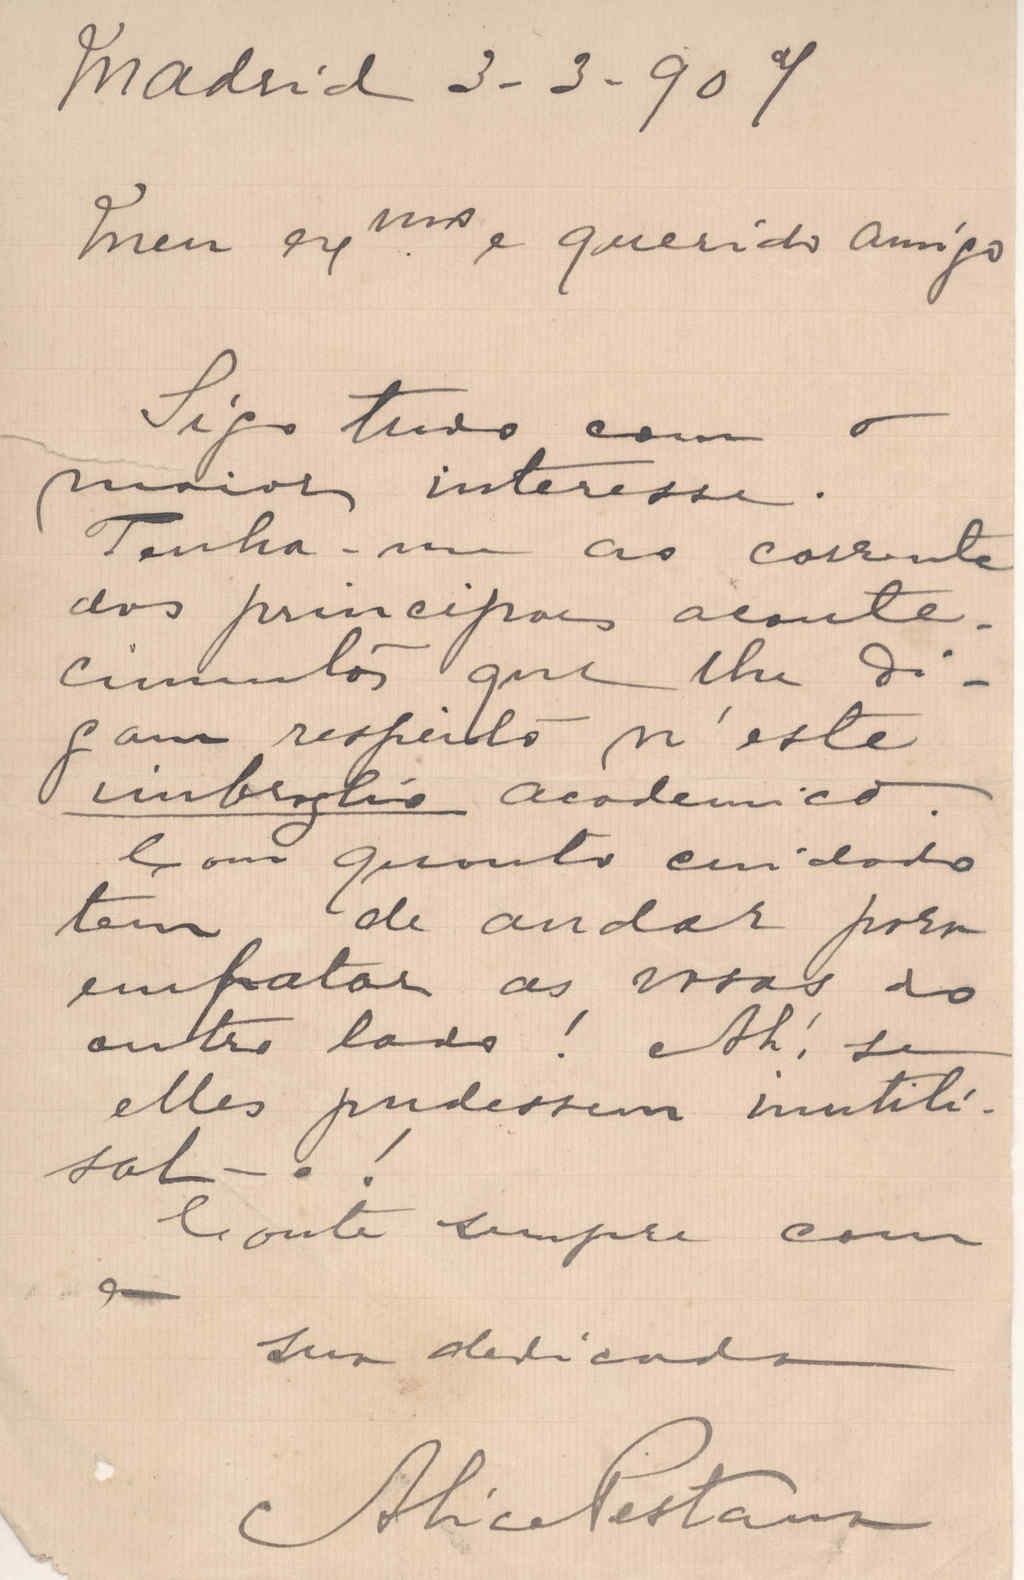 Madrid 3-3-907
Meu exmo e querido amigo
Sigo tudo com o
maior interesse.
Tenha-me ao corrente
dos principaes aconte-
cimentos que lhe di-
gam respeito n'este
imbroglio academico.
Com quanto cuidado
tem de andar para
empatar as vasas do
outro lado! Ah! se
elles pudessem inutili-
sal-o!
Conte sempre com
a
sua dedicada
Alice Pestana